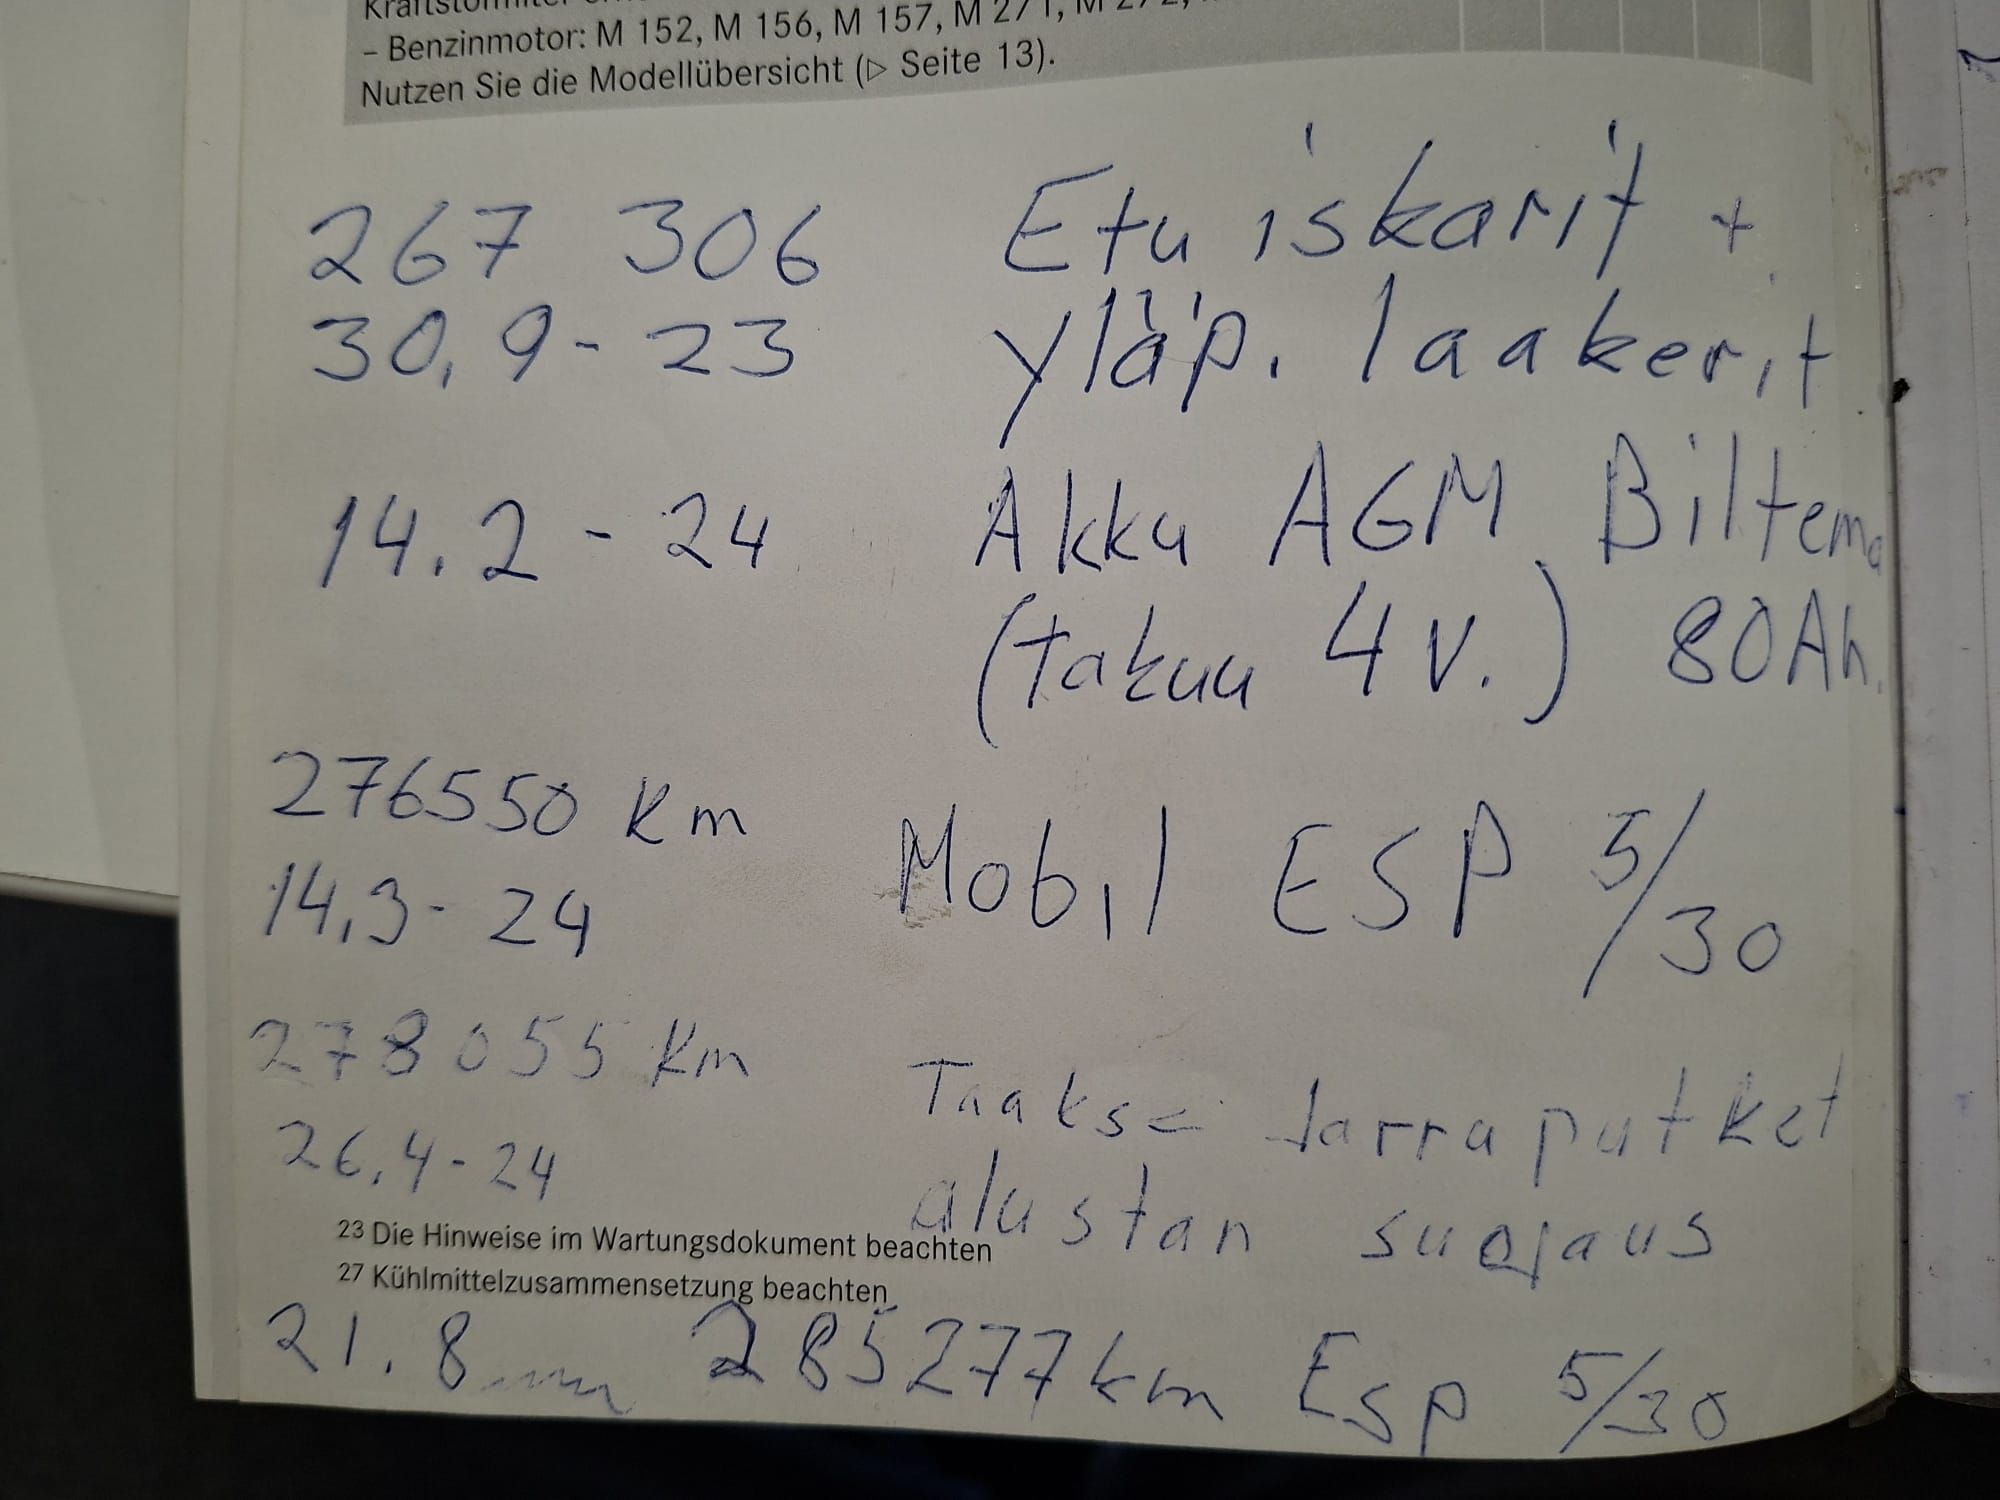 – Benzinmotor: M 152, M 156, M 157, M 271, M 272,
Nutzen Sie die Modellübersicht (▷ Seite 13).
267 306 Etu iskarit +
30,9 - 23 yläp. laakerit
14.2 - 24 Akku AGM Biltema
(takuu 4 v.) 80Ah.
276550 km
Mobil ESP 5/30
14,3 - 24
278055 km
Taakse Jarruputket
26,4 - 24
alustan suojaus
23 Die Hinweise im Wartungsdokument beachten
27 Kühlmittelzusammensetzung beachten
21.8 285277km Esp 5/30